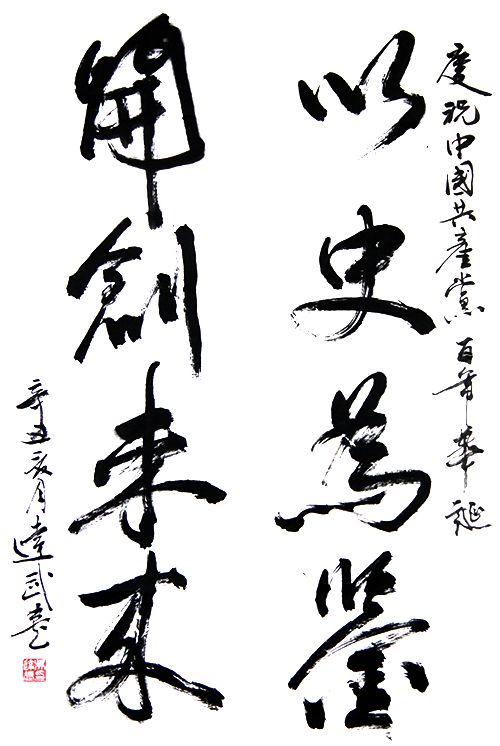 慶祝中國共產黨百年華誕
以史為鑒
開創未來
辛丑亥月達武書